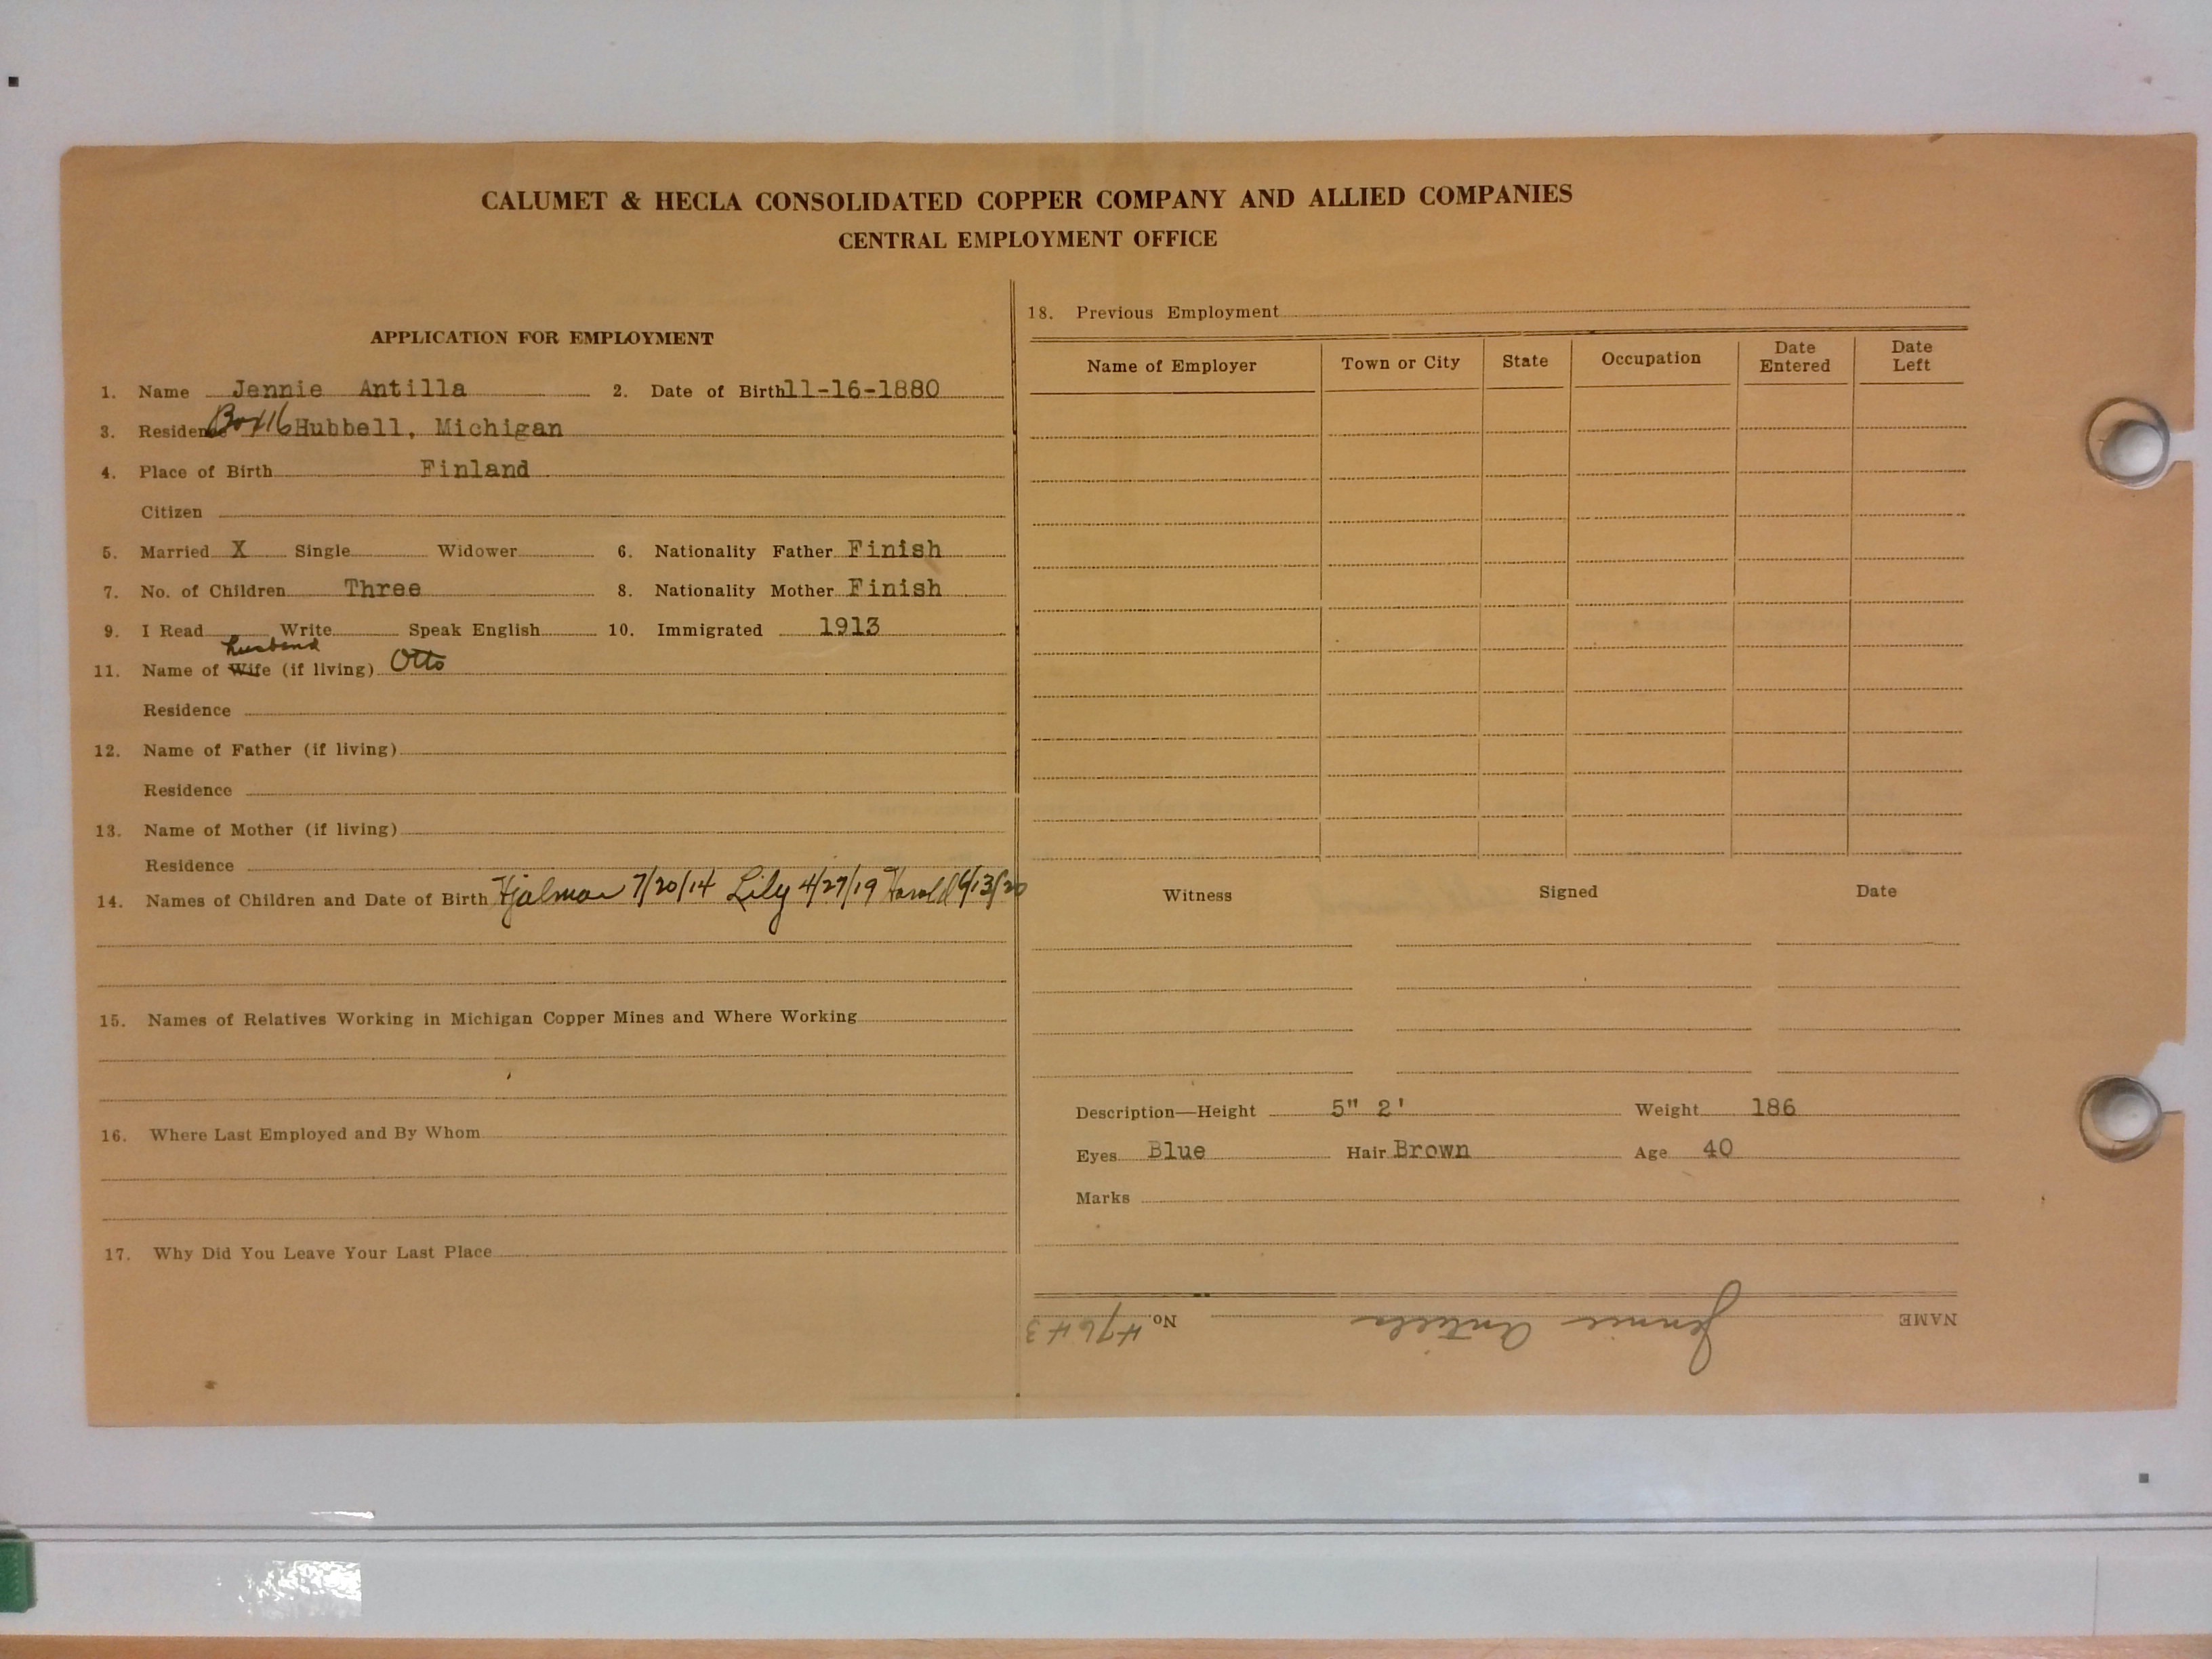 CALUMET & HECLA CONSOLIDATED COPPER COMPANY AND ALLIED COMPANIES
CENTRAL EMPLOYMENT OFFICE
APPLICATION FOR EMPLOYMENT
1. Name Jennie Antilla 2. Date of Birth 11-16-1880
3. Residence Box 16 Hubbell, Michigan
4. Place of Birth Finland
Citizen
5. Married X Single Widower 6. Nationality Father Finish
7. No. of Children Three 8. Nationality Mother Finish
9. I Read Write Speak English 10. Immigrated 1913
husband
11. Name of Wife (if living) Otto
Residence
12. Name of Father (if living)
Residence
13. Name of Mother (if living)
Residence
14. Names of Children and Date of Birth Hjalmar 7/20/14 Lily 4/27/19 Harold 6/13/20
15. Names of Relatives Working in Michigan Copper Mines and Where Working
16. Where Last Employed and By Whom
17. Why Did You Leave Your Last Place
18. Previous Employment
Name of Employer Town or City State Occupation Date Entered Date Left
Witness Signed Date
Description—Height 5" 2' Weight 186
Eyes Blue Hair Brown Age 40
Marks
NAME Jennie Antilla No. 47643